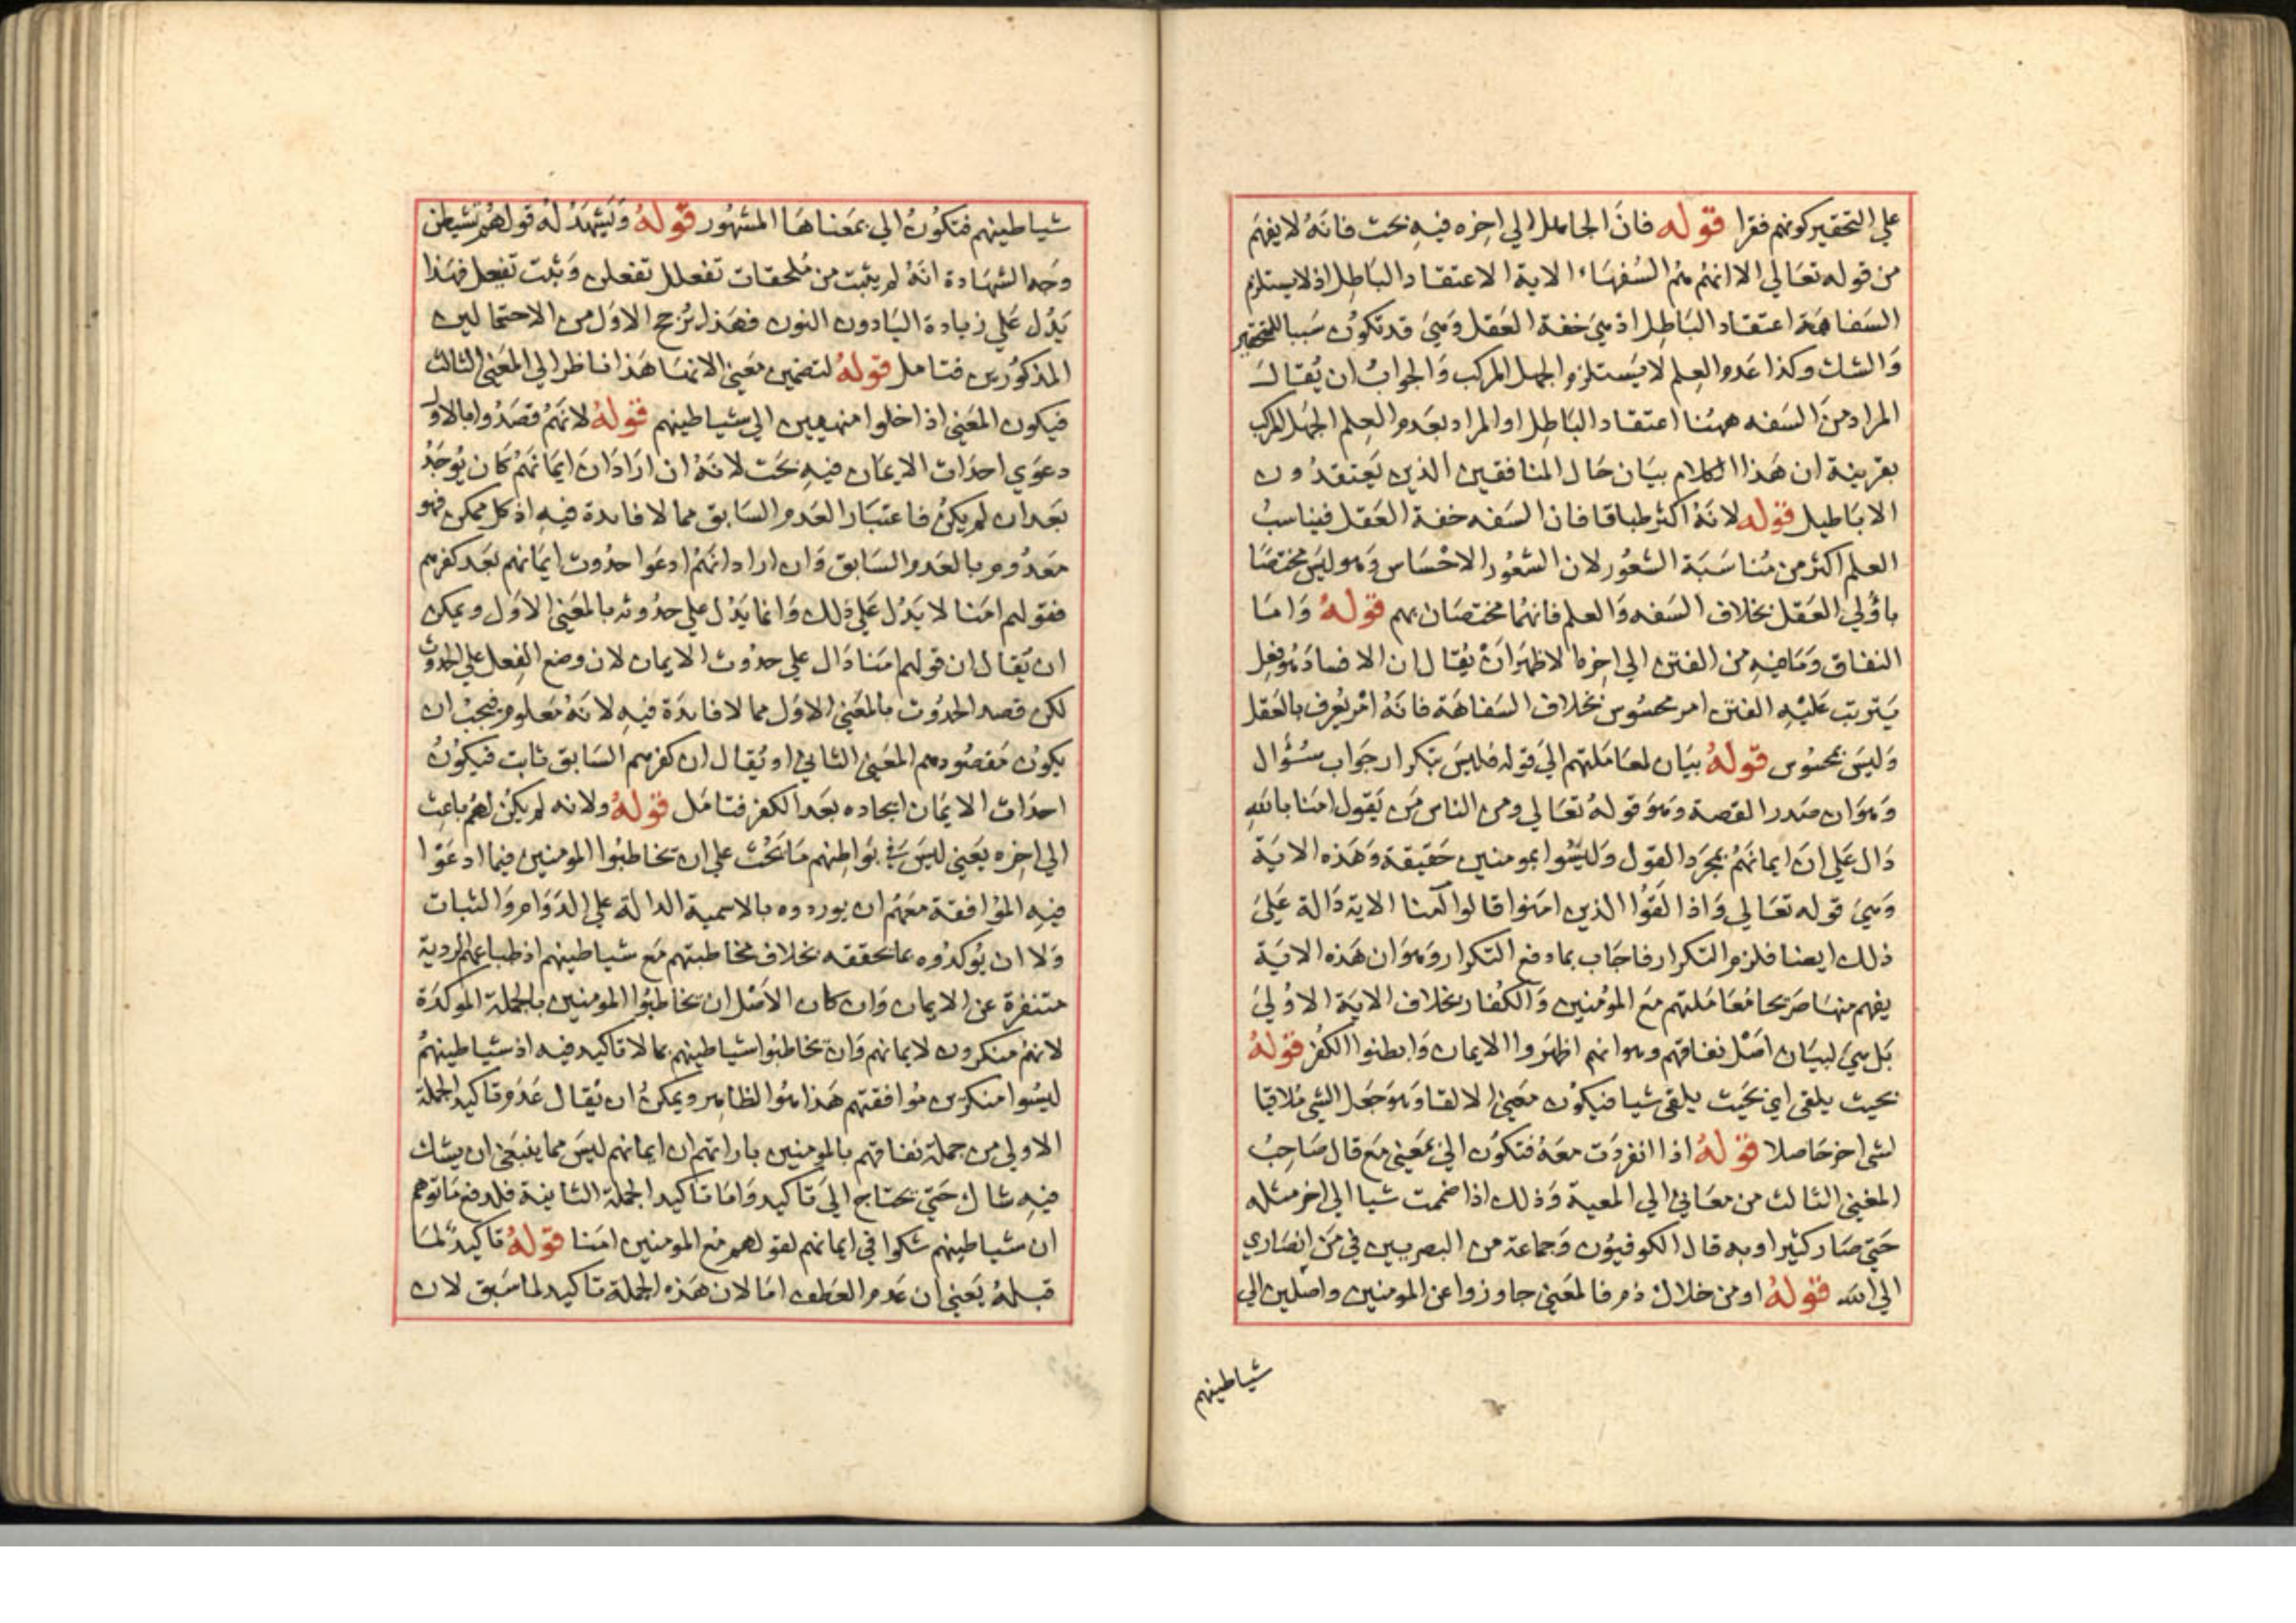 علي التحقير كونهم فقرا قوله فان الجاهل الي اخره فيه بحث فانه لا يفهم
من قوله تعالي الا انهم هم السفهاء الاية الاعتقاد الباطل اذ لا يستلزم
السفاهة اعتقاد الباطل اذ هي خفة العقل وهي قد تكون سببا للتحير
والشك وكذا عدم العلم لا يستلزم الجهل المركب والجواب ان يقال
المراد من السفه ههنا اعتقاد الباطل او المراد بعدم العلم الجهل المركب
بقرينة ان هذا الكلام بيان حال المنافقين الذين يعتقدون
الاباطيل قوله لانه اكثر طباقا فان السفه خفة العقل فيناسب
العلم اكثر من مناسبة الشعور لان الشعور الاحساس وهو ليس مختصا
باولي العقل بخلاف السفه والعلم فانهما مختصان بهم قوله واما
النفاق وما فيه من الفتن الي اخره الاظهر ان يقال ان الافساد هو فعل
يترتب عليه الفتن امر محسوس بخلاف السفاهة فانه امر يعرف بالعقل
وليس بمحسوس قوله بيان لمعاملتهم الي قوله فليس بتكرار جواب سؤال
وهو ان صدر القصة وهو قوله تعالي ومن الناس من يقول امنا بالله
دال علي ان ايمانهم بمجرد القول وليسوا بمومنين حقيقة وهذه الاية
وهي قوله تعالي واذا لقوا الذين امنوا قالوا آمنا الاية دالة علي
ذلك ايضا فلزم التكرار فاجاب بما دفع التكرار وهو ان هذه الاية
يفهم منها صريحا معاملتهم مع المؤمنين والكفار بخلاف الاية الاولي
بل هي لبيان اصل نفاقهم وهو انهم اظهروا الايمان وابطنوا الكفر قوله
بحيث يلقي اي بحيث يلقي شيا فيكون معني الالقا وهو جعل الشي ملاقيا
لشي اخر حاصلا قوله اذا انفردت معه فتكون الي بمعني مع قال صاحب
المغني الثالث من معاني الي المعية وذلك اذا ضممت شيا الي اخر مثله
حتي صار كثيرا وبه قال الكوفيون وجماعة من البصريين في من انصاري
الي الله قوله او من خلاك ذم فالمعني جاوزوا عن المومنين واصلين الي
شياطينهم
شياطينهم فتكون الي بمعناها المشهور قوله وليشهد له قولهم تشيطن
وجه الشهادة انه لم يثبت من ملحقات تفعلل تفعلن وثبت تفيعل فهذا
يدل علي زيادة اليا دون النون فهذا يرجح الاول من الاحتمالين
المذكورين فتامل قوله لتضمين معني الانها هذا ناظر الي المعني الثالث
فيكون المعني اذا خلوا منهيين الي شياطينهم قوله لانهم قصدوا بالاول
دعوي احداث الايمان فيه بحث لانه ان اراد ان ايمانهم كان يوجد
بعد ان لم يكن فاعتبار العدم السابق مما لا فايدة فيه اذ كل ممكن فهو
معدوم بالعدم السابق وان اراد انهم ادعوا حدوث ايمانهم بعد كفرهم
فقولهم امنا لا يدل علي ذلك وانما يدل علي حدوثه بالمعني الاول ويمكن
ان يقال ان قولهم امنا دال علي حدوث الايمان لان وضع الفعل علي الحدوث
لكن قصد الحدوث بالمعني الاول مما لا فايدة فيه لانه معلوم فيجب ان
يكون مقصودهم المعني الثاني او يقال ان كفرهم السابق ثابت فيكون
احداث الايمان ايجاده بعد الكفر فتامل قوله ولانه لم يكن لهم باعث
الي اخره يعني ليس في بواطنهم ما بحث علي ان يخاطبوا المومنين فيما ادعوا
فيه الموافقة معهم ان يوردوه بالاسمية الدالة علي الدوام والثبات
ولا ان يؤكدوه بما يحققه بخلاف مخاطبتهم مع شياطينهم اذ طباعهم الردية
متنفرة عن الايمان وان كان الاصل ان يخاطبوا المومنين بالجملة الموكدة
لانهم منكرون لايمانهم وان يخاطبوا شياطينهم بما لا تاكيد فيه اذ شياطينهم
ليسوا منكرين موافقتهم هذا هو الظاهر ويمكن ان يقال عدم تاكيد الجملة
الاولي من جملة نفاقهم بالمومنين باراتهم ان ايمانهم ليس مما ينبغي ان يشك
فيه شاك حتي يحتاج الي تاكيد واما تاكيد الجملة الثانية فلدفع ما توهم
ان شياطينهم شكوا في ايمانهم لقولهم مع المومنين امنا قوله تاكيد لما
قبله يعني ان عدم العطف اما لان هذه الجملة تاكيد لما سبق لان